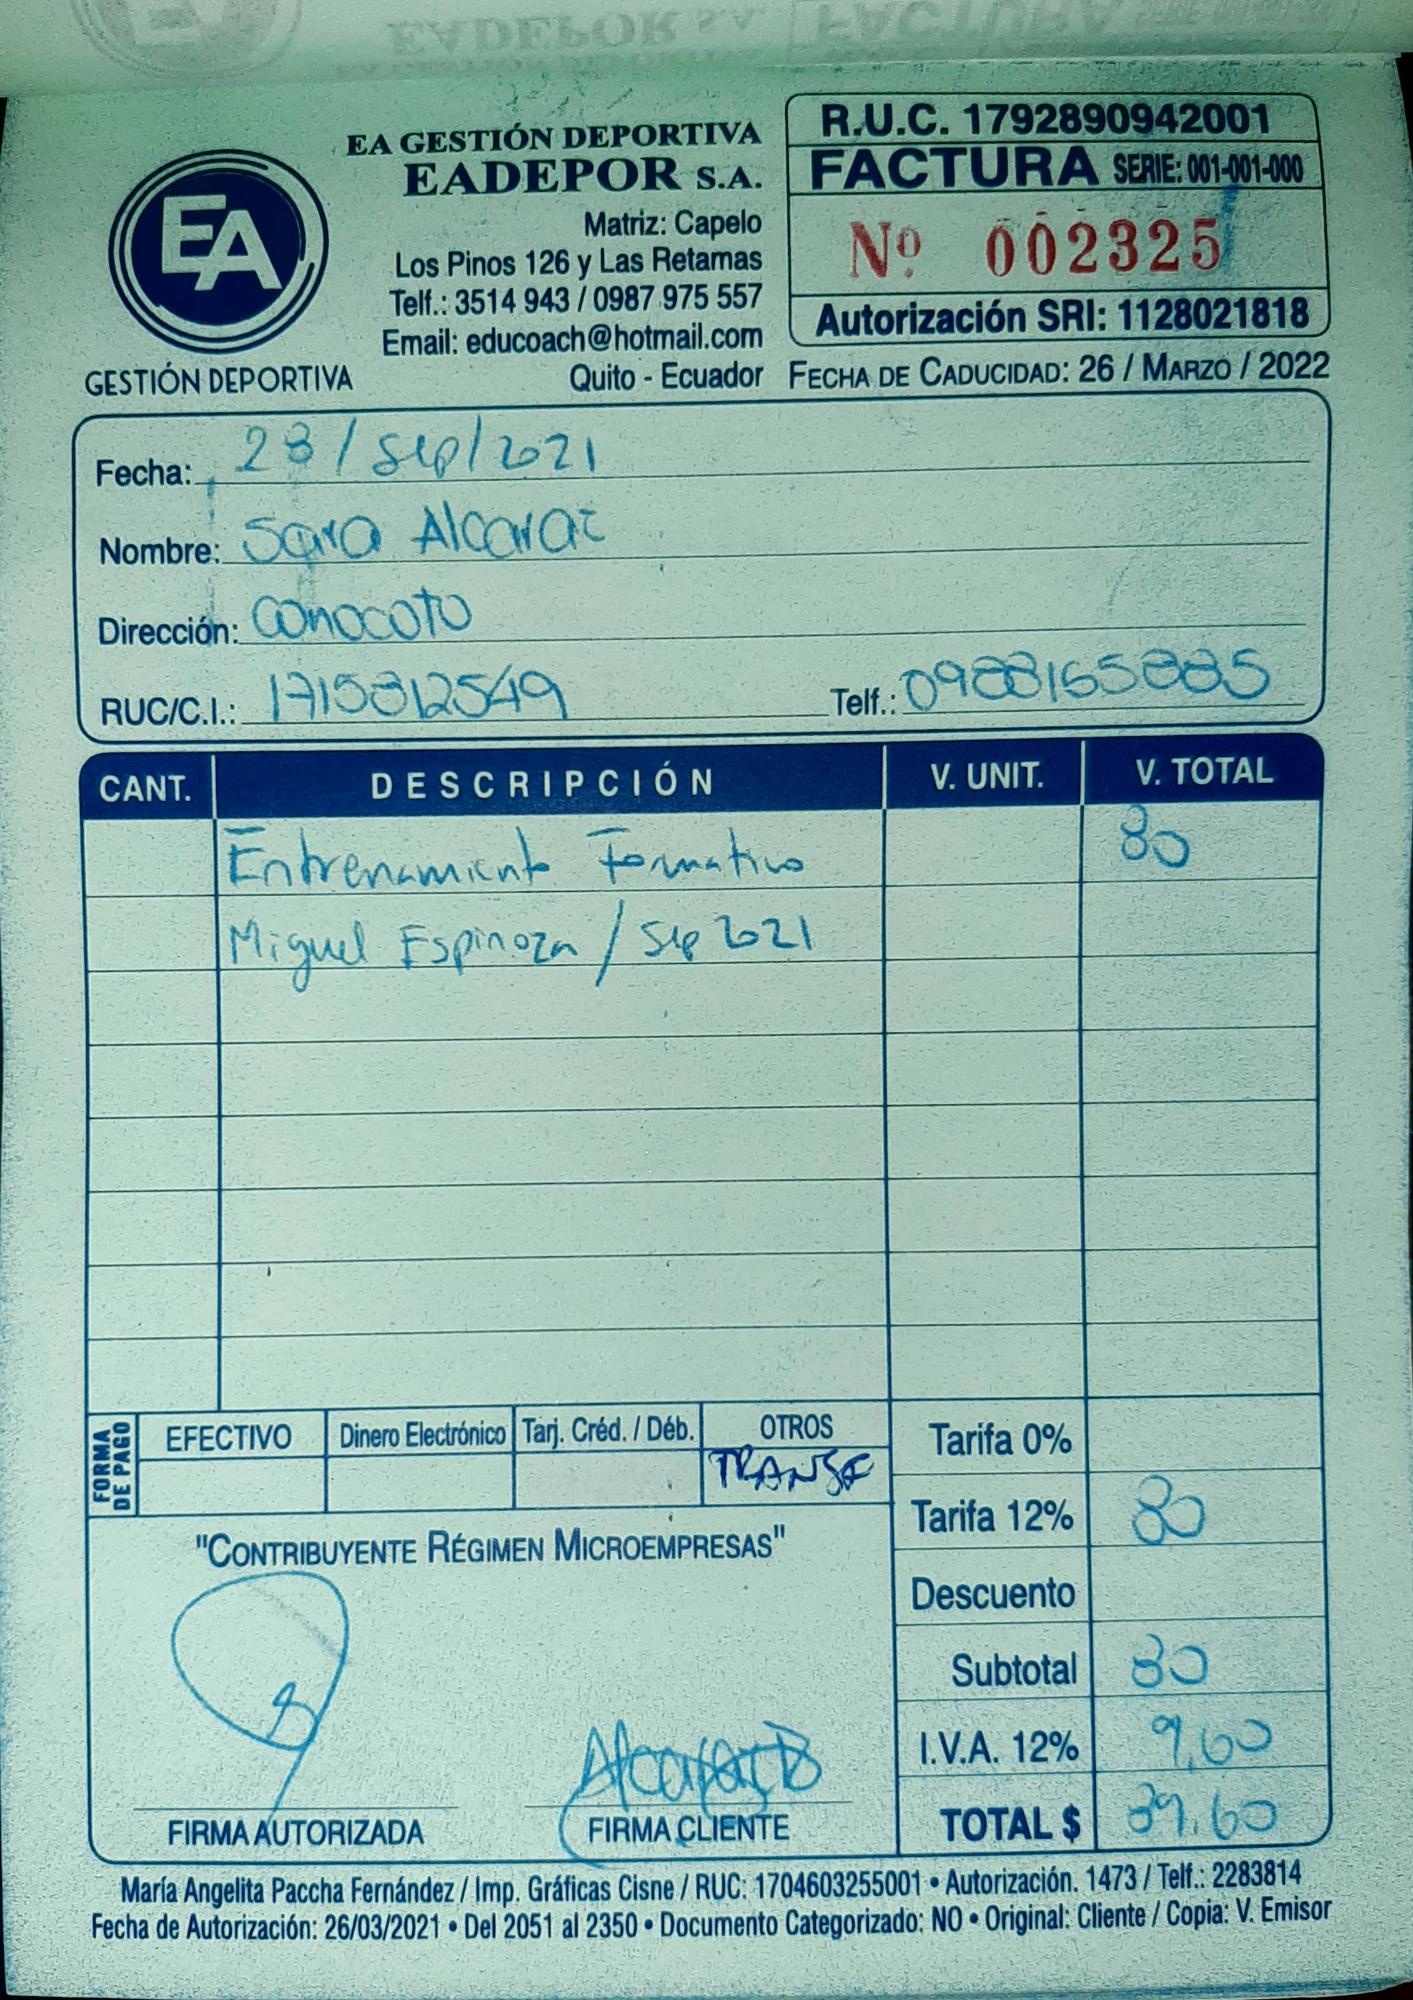 EA GESTIÓN DEPORTIVA
EADEPOR S.A.
Matriz: Capelo
Los Pinos 126 y Las Retamas
Telf.: 3514 943 / 0987 975 557
Email: educoach@hotmail.com
Quito - Ecuador
EA
GESTIÓN DEPORTIVA
R.U.C. 1792890942001
FACTURA SERIE: 001-001-000
Nº 002325
Autorización SRI: 1128021818
FECHA DE CADUCIDAD: 26 / MARZO / 2022
Fecha: 28/Sep/2021
Nombre: Sara Alcaraz
Dirección: Conocoto
RUC/C.I.: 1715812549 Telf.: 0988165885
CANT. DESCRIPCIÓN V. UNIT. V. TOTAL
Entrenamiento Formativo 80
Miguel Espinoza / Sep 2021
FORMA DE PAGO
EFECTIVO Dinero Electrónico Tarj. Créd. / Déb. OTROS
TRANSF
Tarifa 0%
Tarifa 12% 80
Descuento
Subtotal 80
I.V.A. 12% 9,60
TOTAL $ 89.60
"CONTRIBUYENTE RÉGIMEN MICROEMPRESAS"
FIRMA AUTORIZADA FIRMA CLIENTE
María Angelita Paccha Fernández / Imp. Gráficas Cisne / RUC: 1704603255001 • Autorización. 1473 / Telf.: 2283814
Fecha de Autorización: 26/03/2021 • Del 2051 al 2350 • Documento Categorizado: NO • Original: Cliente / Copia: V. Emisor